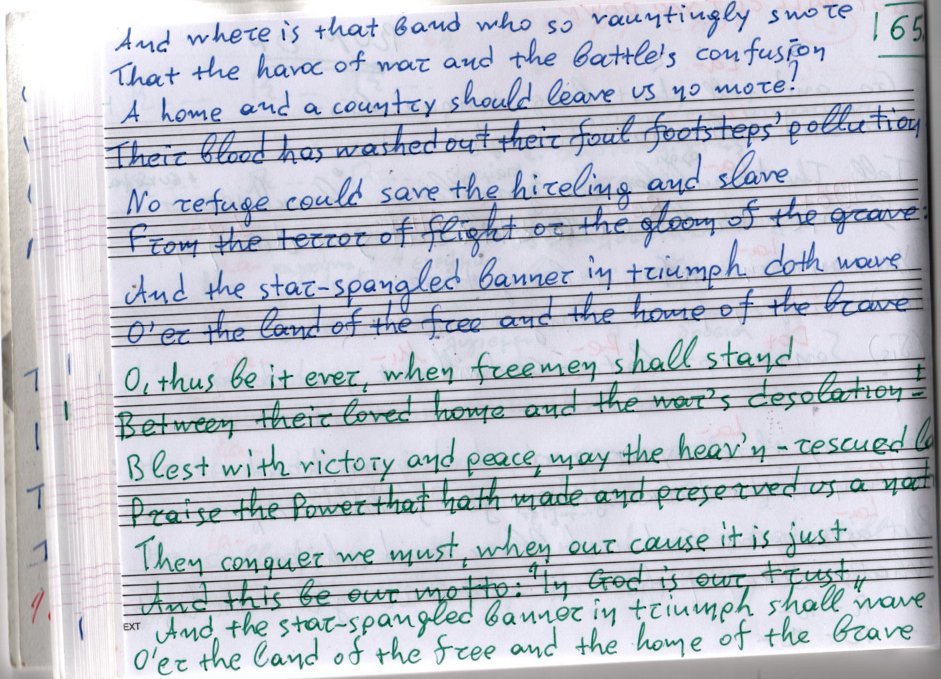 165
And where is that band who so vauntingly swore
That the havoc of war and the battle's confusion
A home and a country should leave us no more?
Their blood has washed out their foul footsteps' pollution
No refuge could save the hireling and slave
From the terror of flight or the gloom of the grave:
And the star-spangled banner in triumph doth wave
O'er the land of the free and the home of the brave
O, thus be it ever, when freemen shall stand
Between their loved home and the war's desolation!
Blest with victory and peace, may the heav'n-rescued la
Praise the Power that hath made and preserved us a nat
Then conquer we must, when our cause it is just
And this be our motto: "In God is our trust"
EXT
And the star-spangled banner in triumph shall wave
O'er the land of the free and the home of the brave